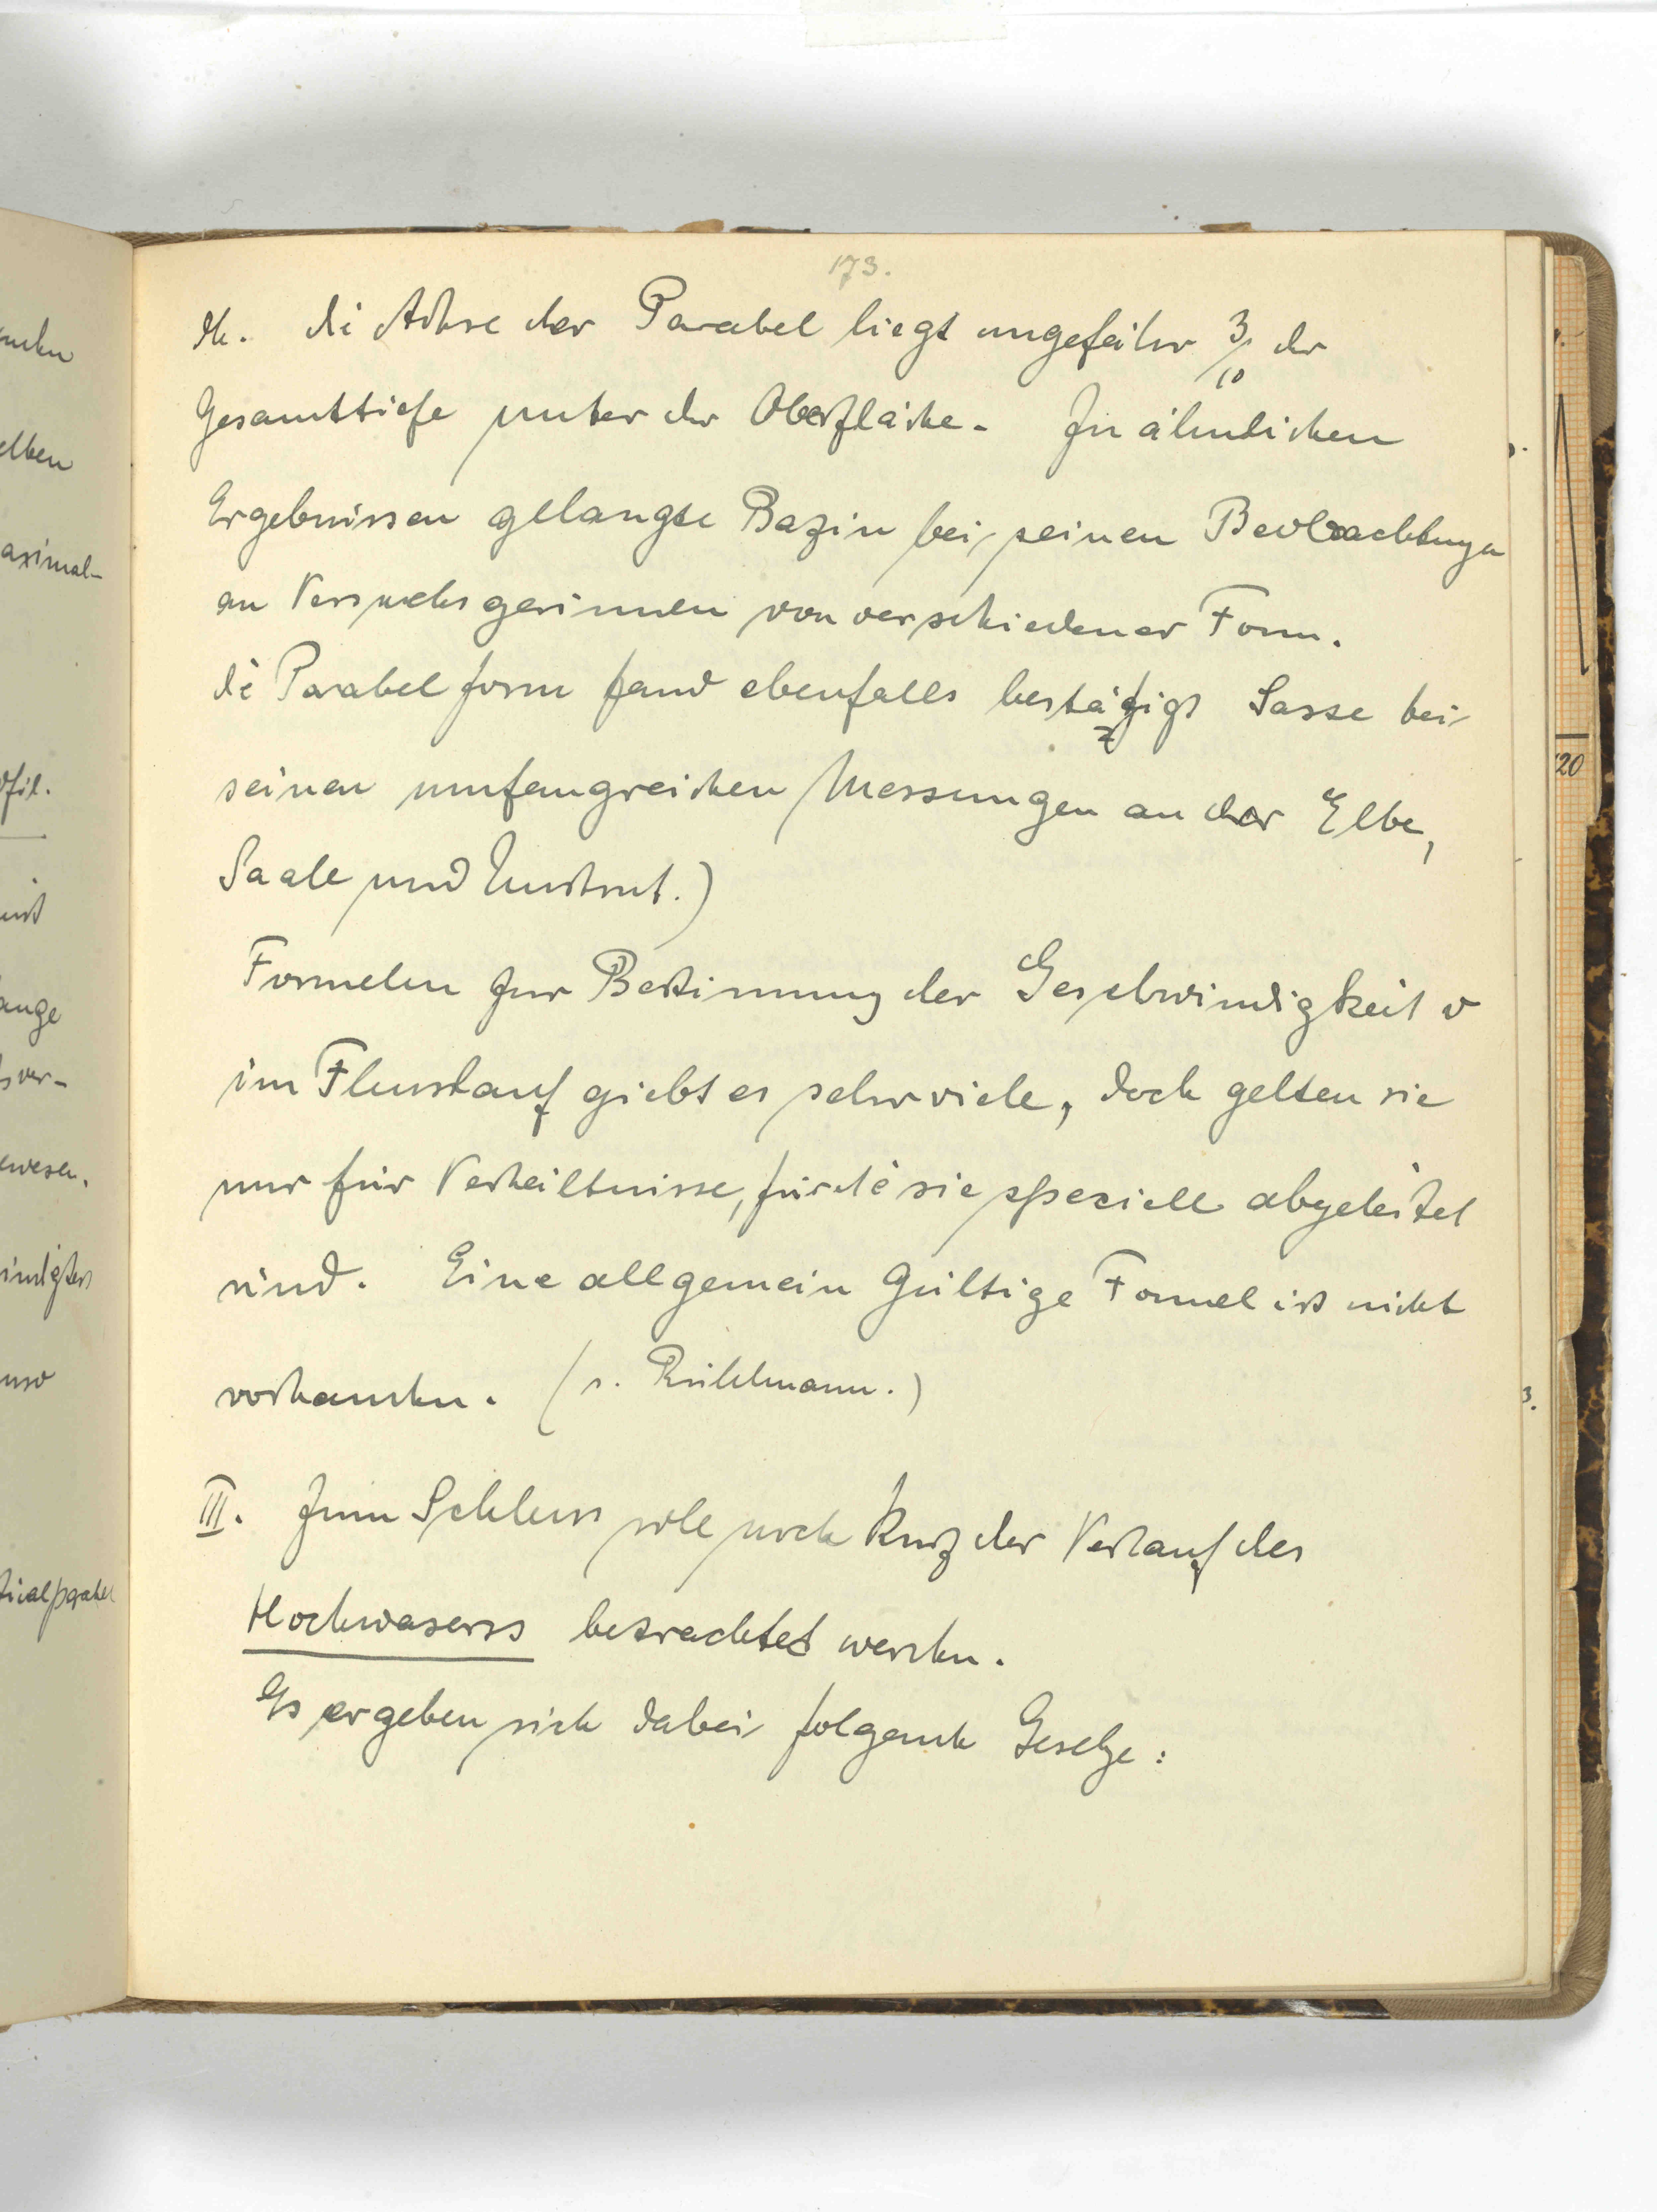 173.
die Achse der Parabel liegt ungefähr 3/10 der
Gesamttiefe unter der Oberfläche. Zu ähnlichen
Ergebnissen gelangte Bazin bei seinen Beobachtungen
an Versuchsgerinnen von verschiedener Form.
die Parabelform fand ebenfalls bestätigt Sasse bei
seinen umfangreichen Messungen an der Elbe,
Saale und Unstrut.)
Formeln zur Bestimmung der Geschwindigkeit v
im Flusslauf giebt es sehr viele, doch gelten sie
nur für Verhältnisse, für die sie speciell abgeleitet
sind. Eine allgemein Gültige Formel ist nicht
vorhanden. (s. Rühlmann.)
III. Zum Schluss soll noch kurz der Verlauf des
Hochwassers betrachtet werden.
Es ergeben sich dabei folgende Gesetze:
elben
aximal-
ofil.
ange
sver-
ewesen.
3.
20